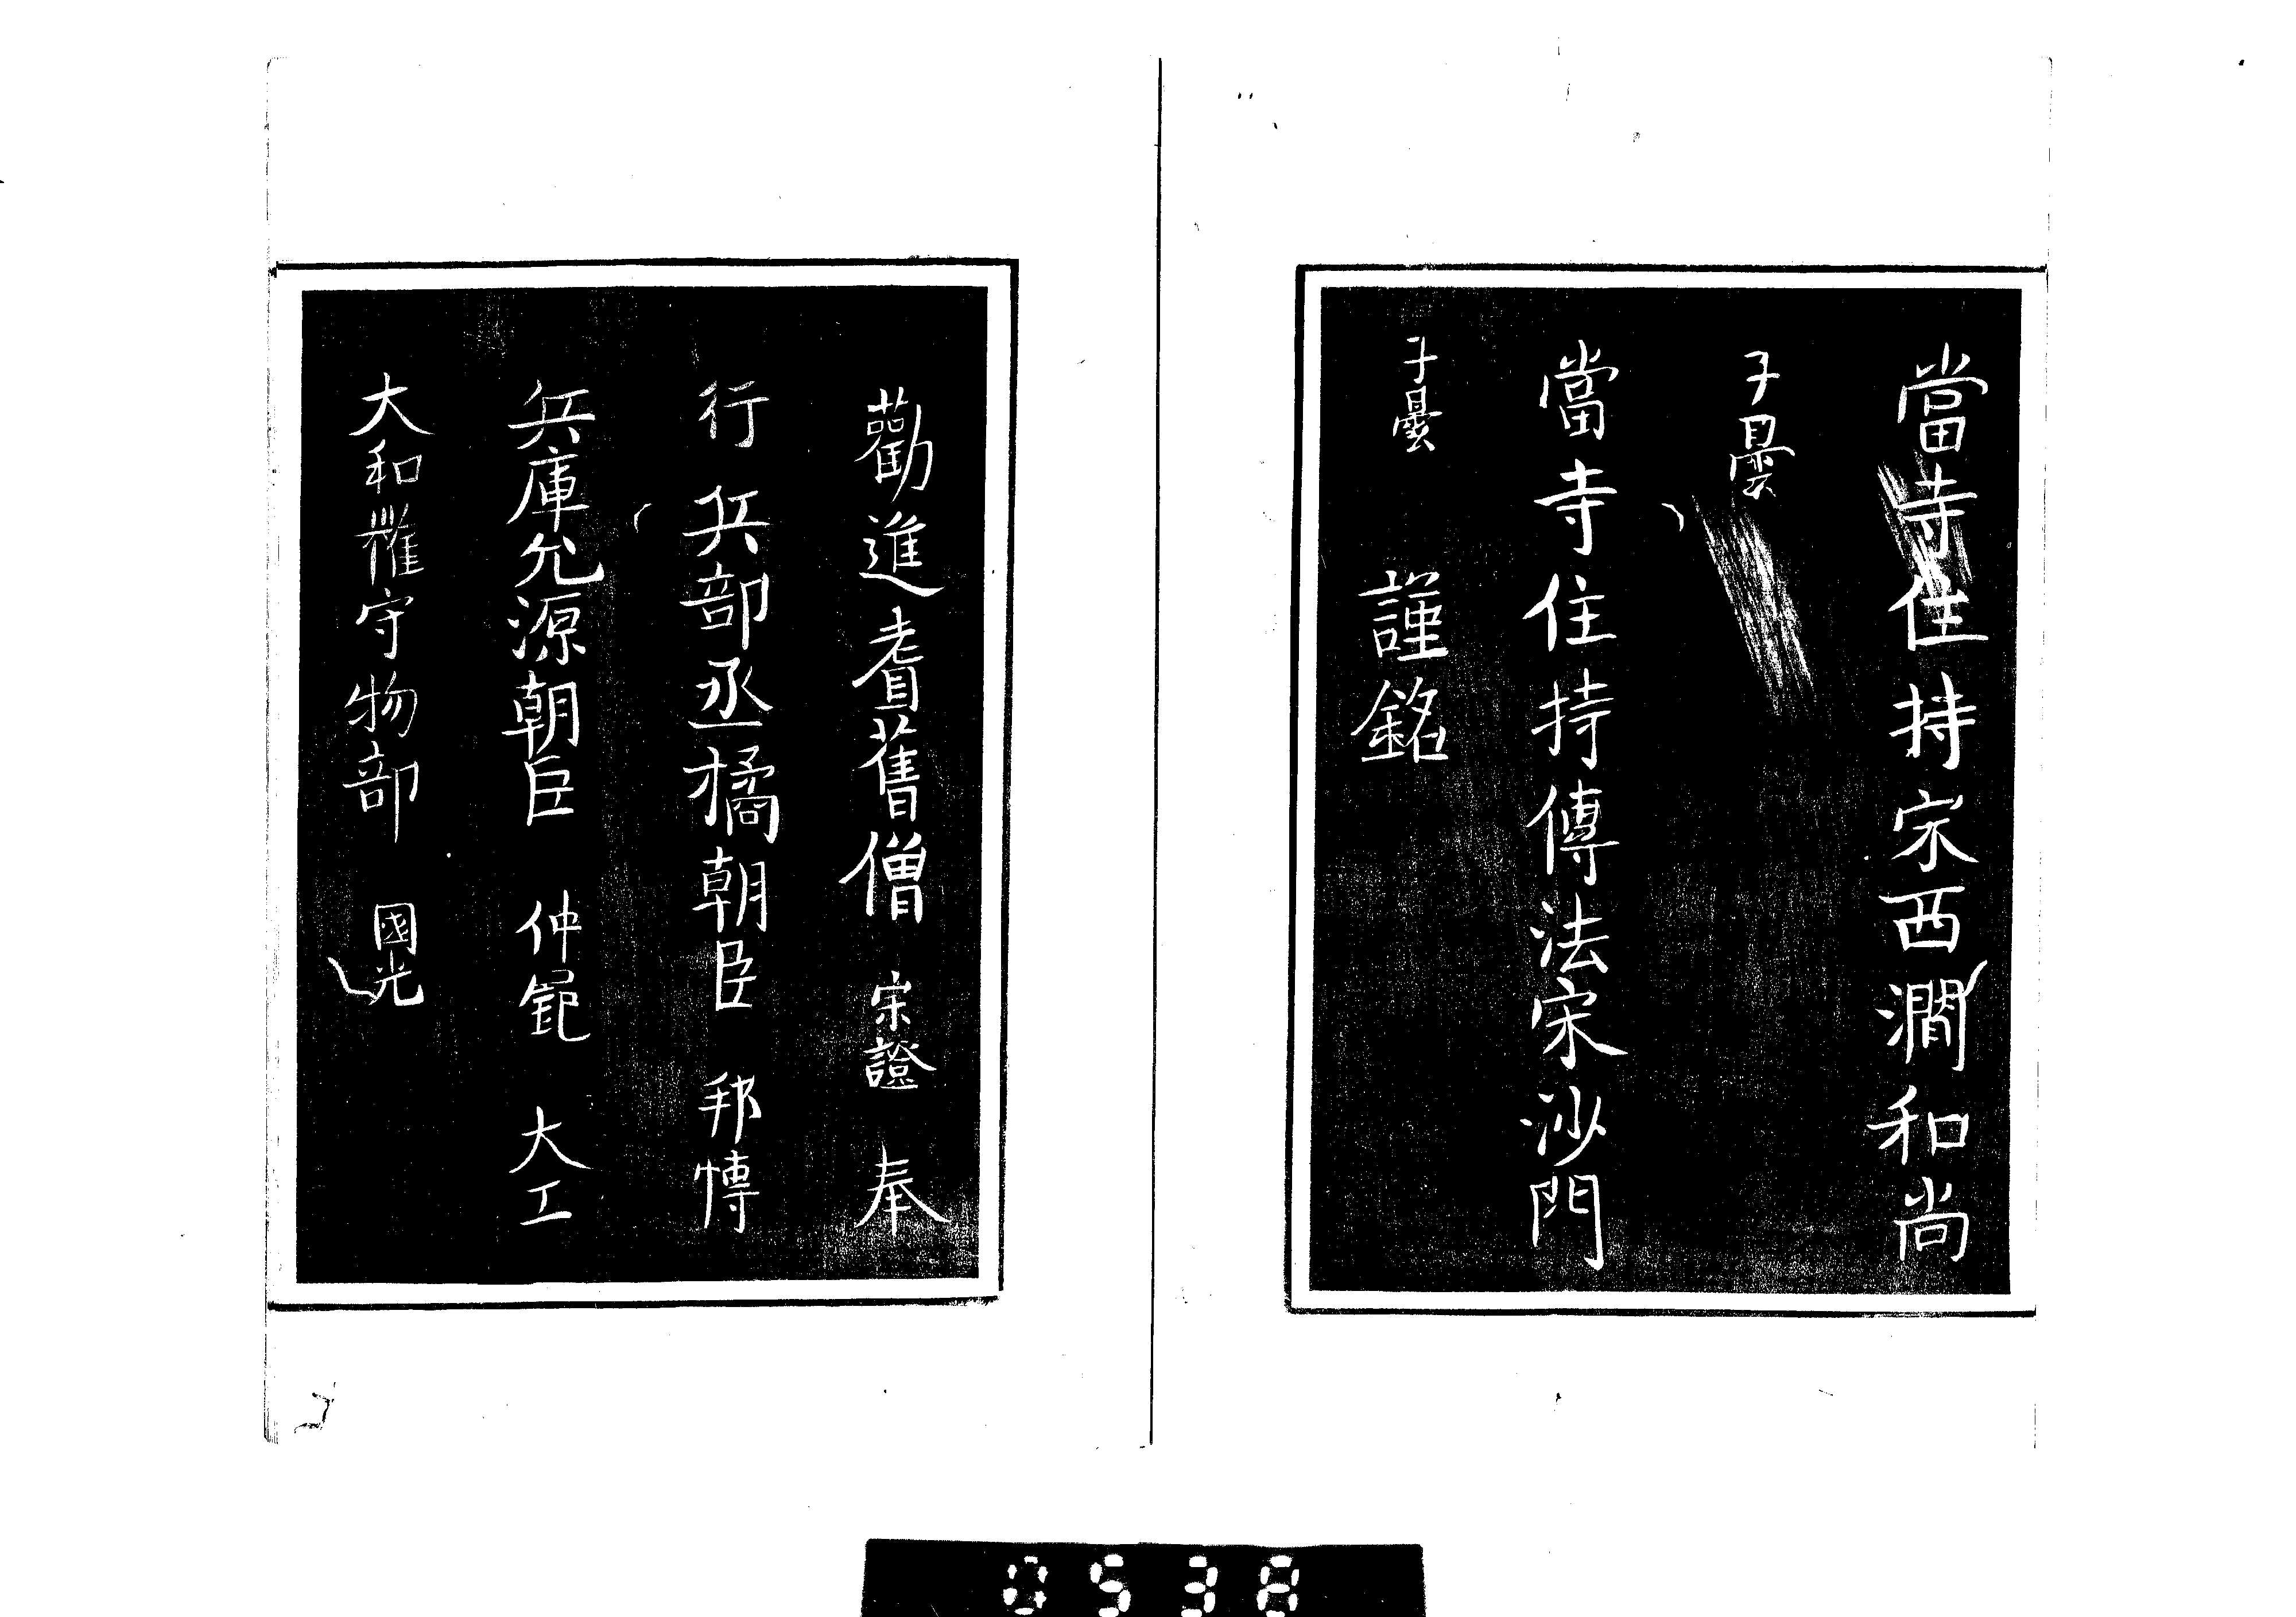 當寺住持宋西澗和尚
子曇
當寺住持傳法宋沙門
子曇 謹銘
勸進耆舊僧 宗證 奉
行 兵部丞橘朝臣 邦博
兵庫允源朝臣 仲範 大工
大和權守物部 國光
0538